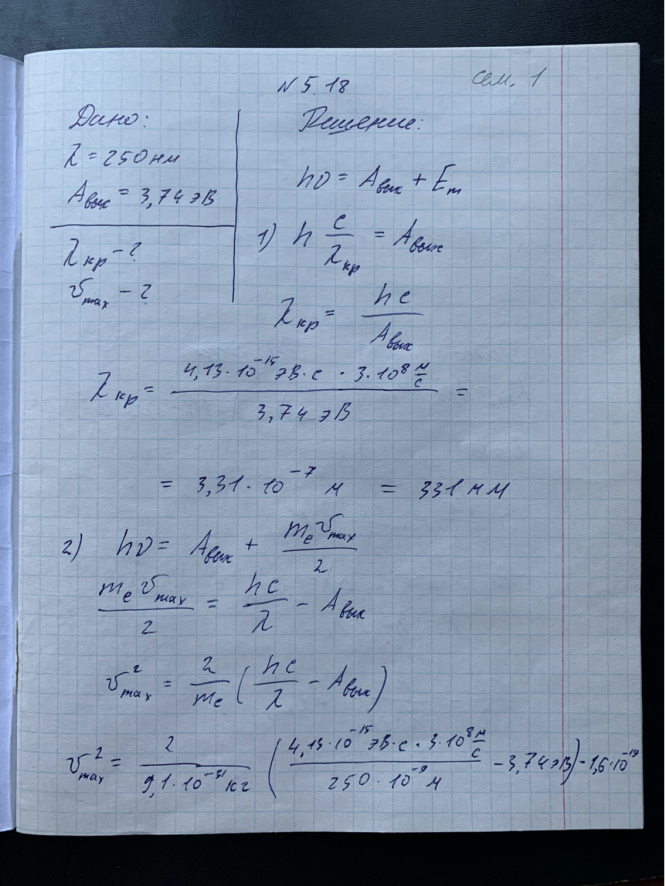 N 5.18
сем. 1
Дано:
λ = 250 нм
Aвых = 3,74 эВ
λкр - ?
υmax - ?
Решение:
hν = Aвых + Em
1) h c/λкр = Aвых
λкр = hc/Aвых
λкр = (4,13·10⁻¹⁵ эВ·с · 3·10⁸ м/с)/(3,74 эВ) =
= 3,31·10⁻⁷ м = 331 нм
2) hν = Aвых + meυmax/2
meυmax/2 = hc/λ - Aвых
υ²max = 2/me (hc/λ - Aвых)
υ²max = 2/(9,1·10⁻³¹ кг) ((4,13·10⁻¹⁵ эВ·с · 3·10⁸ м/с)/(250·10⁻⁹ м) - 3,74 эВ)·1,6·10⁻¹⁹